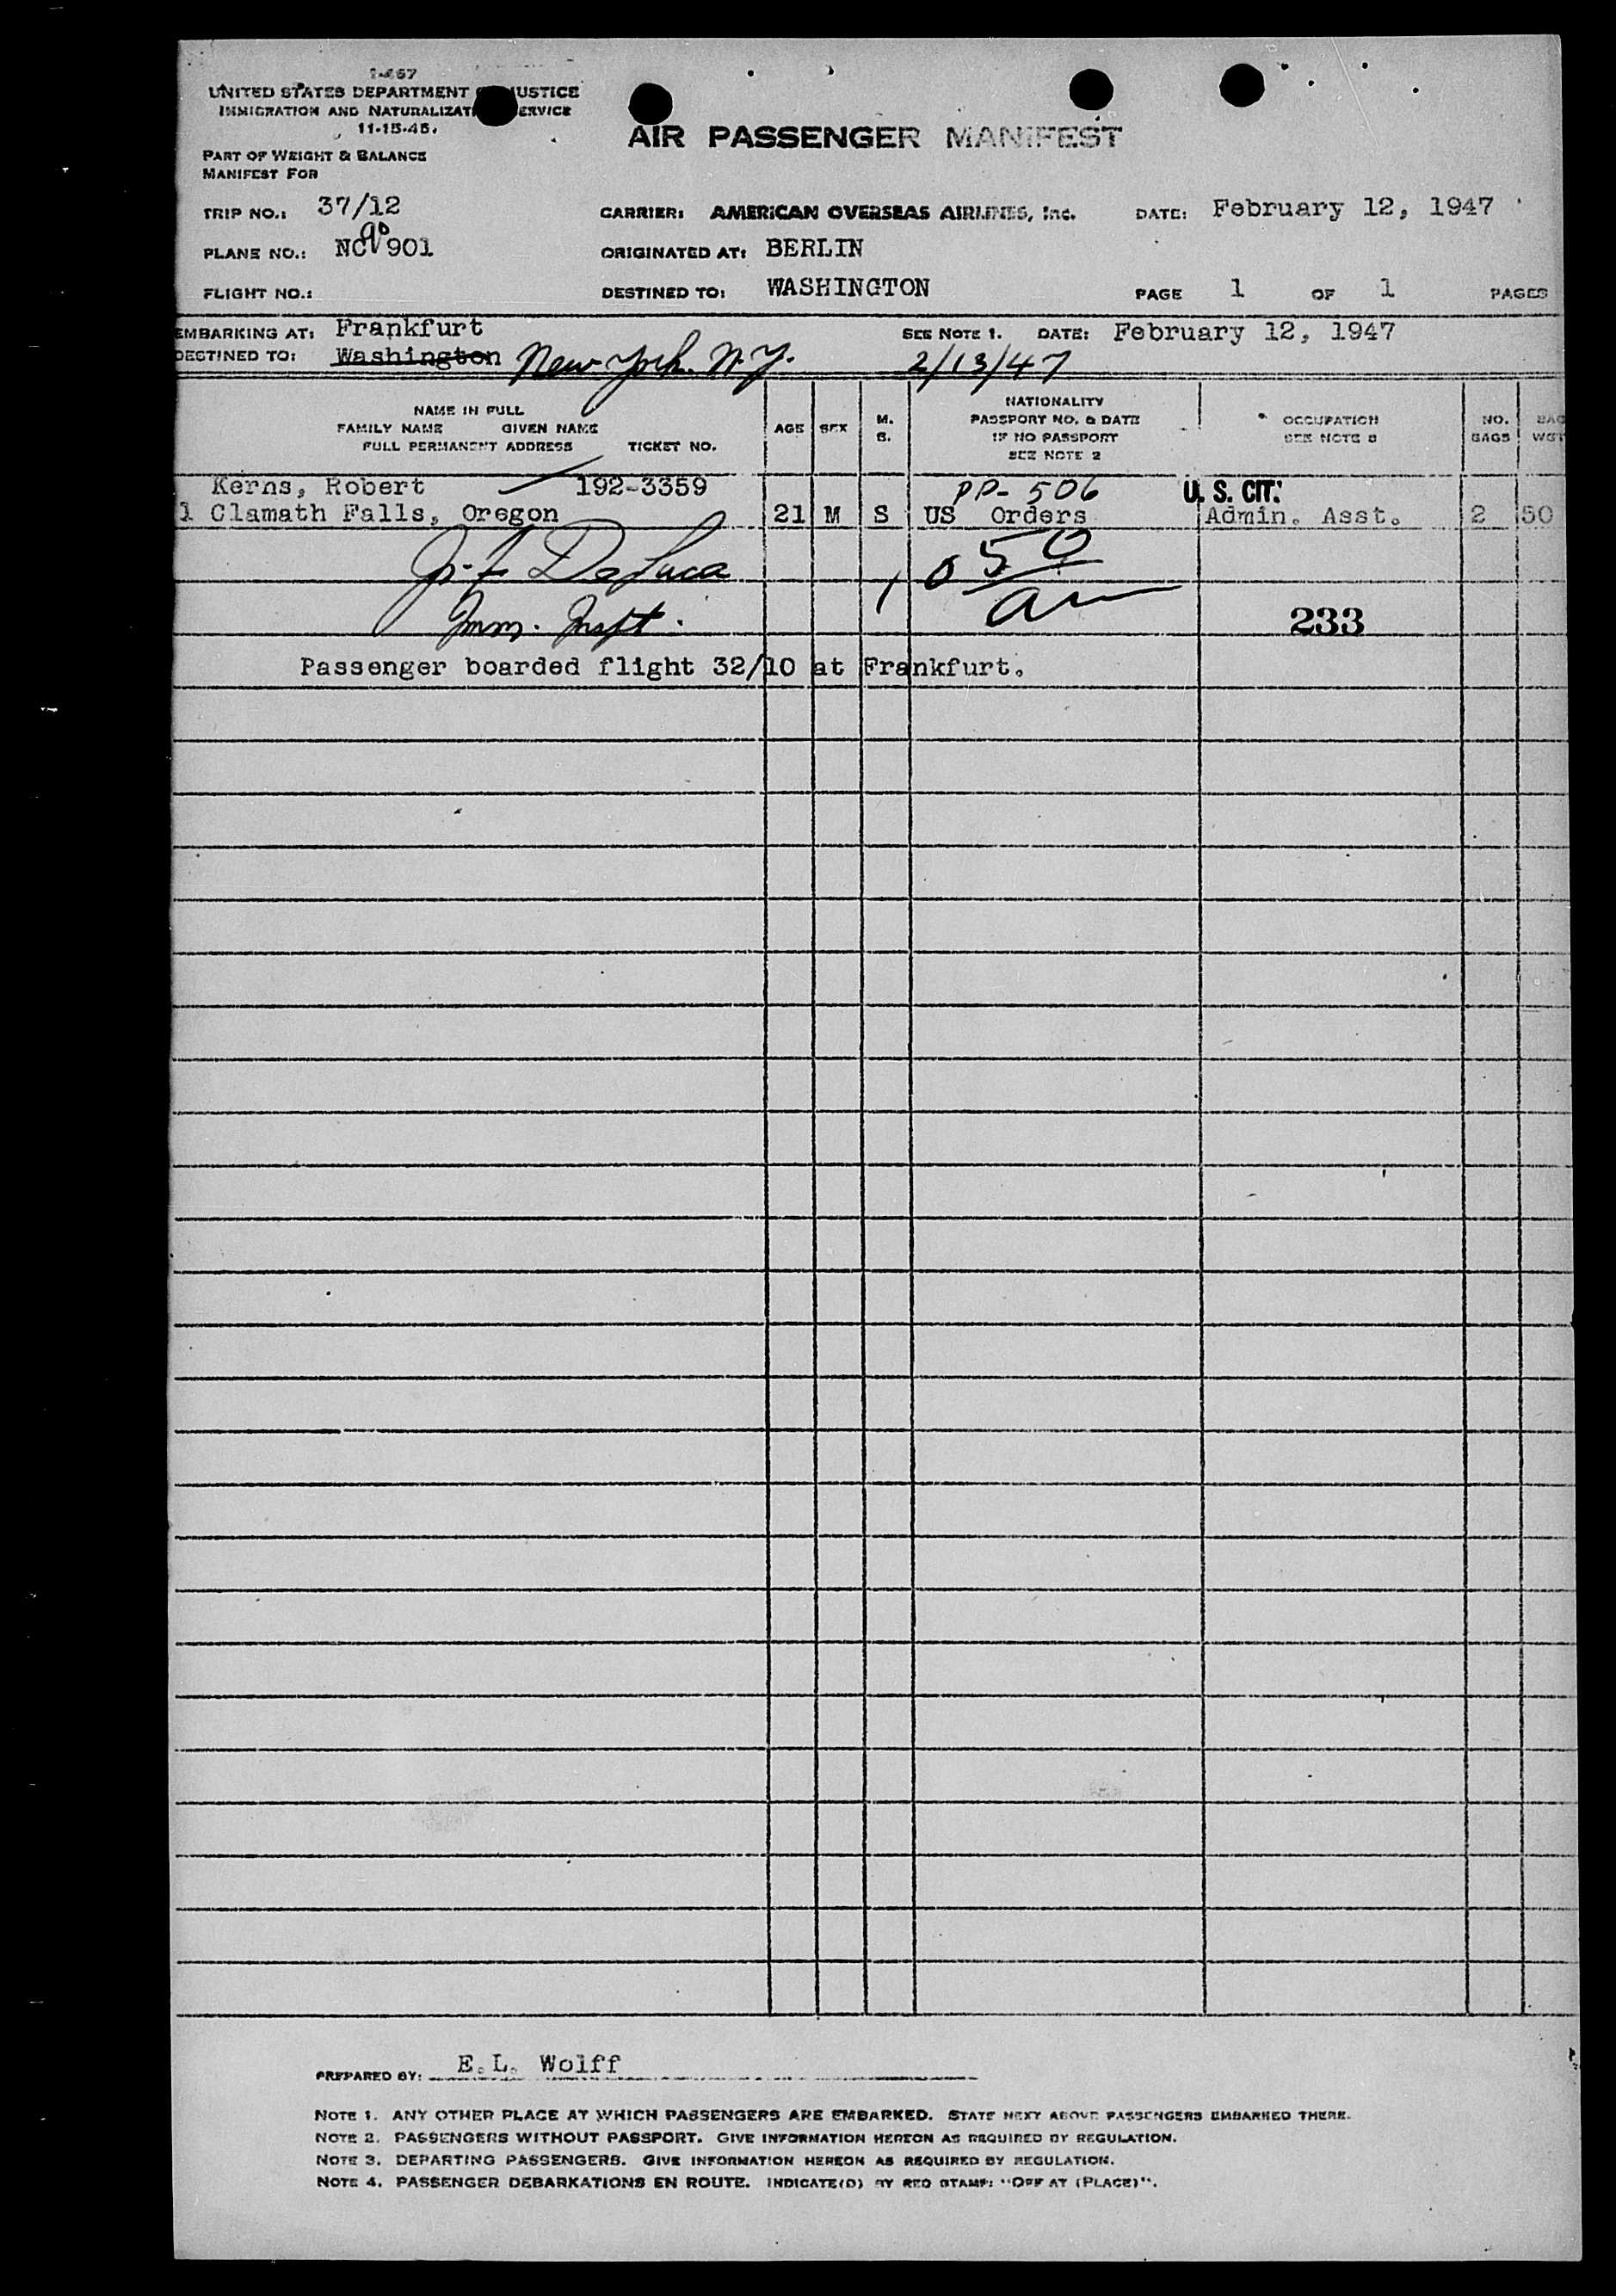 UNITED STATES DEPARTMENT JUSTICE
IMMIGRATION AND NATURALIZAT ERVICE
11-15-45.
AIR PASSENGER MANIFEST
PART OF WEIGHT & BALANCE
MANIFEST FOR
TRIP NO.: 37/12 CARRIER: AMERICAN OVERSEAS AIRLINES, Inc. DATE: February 12, 1947
PLANE NO.: NC 90 901 ORIGINATED AT: BERLIN
FLIGHT NO.: DESTINED TO: WASHINGTON PAGE 1 OF 1 PAGES
EMBARKING AT: Frankfurt SEE NOTE 1. DATE: February 12, 1947
DESTINED TO: Washington New York. N.Y. 2/13/47
NAME IN FULL
FAMILY NAME GIVEN NAME
FULL PERMANENT ADDRESS TICKET NO.
AGE SEX M. S.
NATIONALITY
PASSPORT NO. & DATE
IF NO PASSPORT
SEE NOTE 2
OCCUPATION
SEE NOTE 3
NO. BAGS
BAG WGT
Kerns, Robert 192-3359 PP-506 U. S. CIT.
1 Clamath Falls, Oregon 21 M S US Orders Admin. Asst. 2 50
J. F. DeLuca
Imm. Inspt. 233
Passenger boarded flight 32/10 at Frankfurt.
PREPARED BY: E.L. Wolff
NOTE 1. ANY OTHER PLACE AT WHICH PASSENGERS ARE EMBARKED. STATE NEXT ABOVE PASSENGERS EMBARKED THERE.
NOTE 2. PASSENGERS WITHOUT PASSPORT. GIVE INFORMATION HEREON AS REQUIRED BY REGULATION.
NOTE 3. DEPARTING PASSENGERS. GIVE INFORMATION HEREON AS REQUIRED BY REGULATION.
NOTE 4. PASSENGER DEBARKATIONS EN ROUTE. INDICATE(D) BY RED STAMP: "OFF AT (PLACE)".